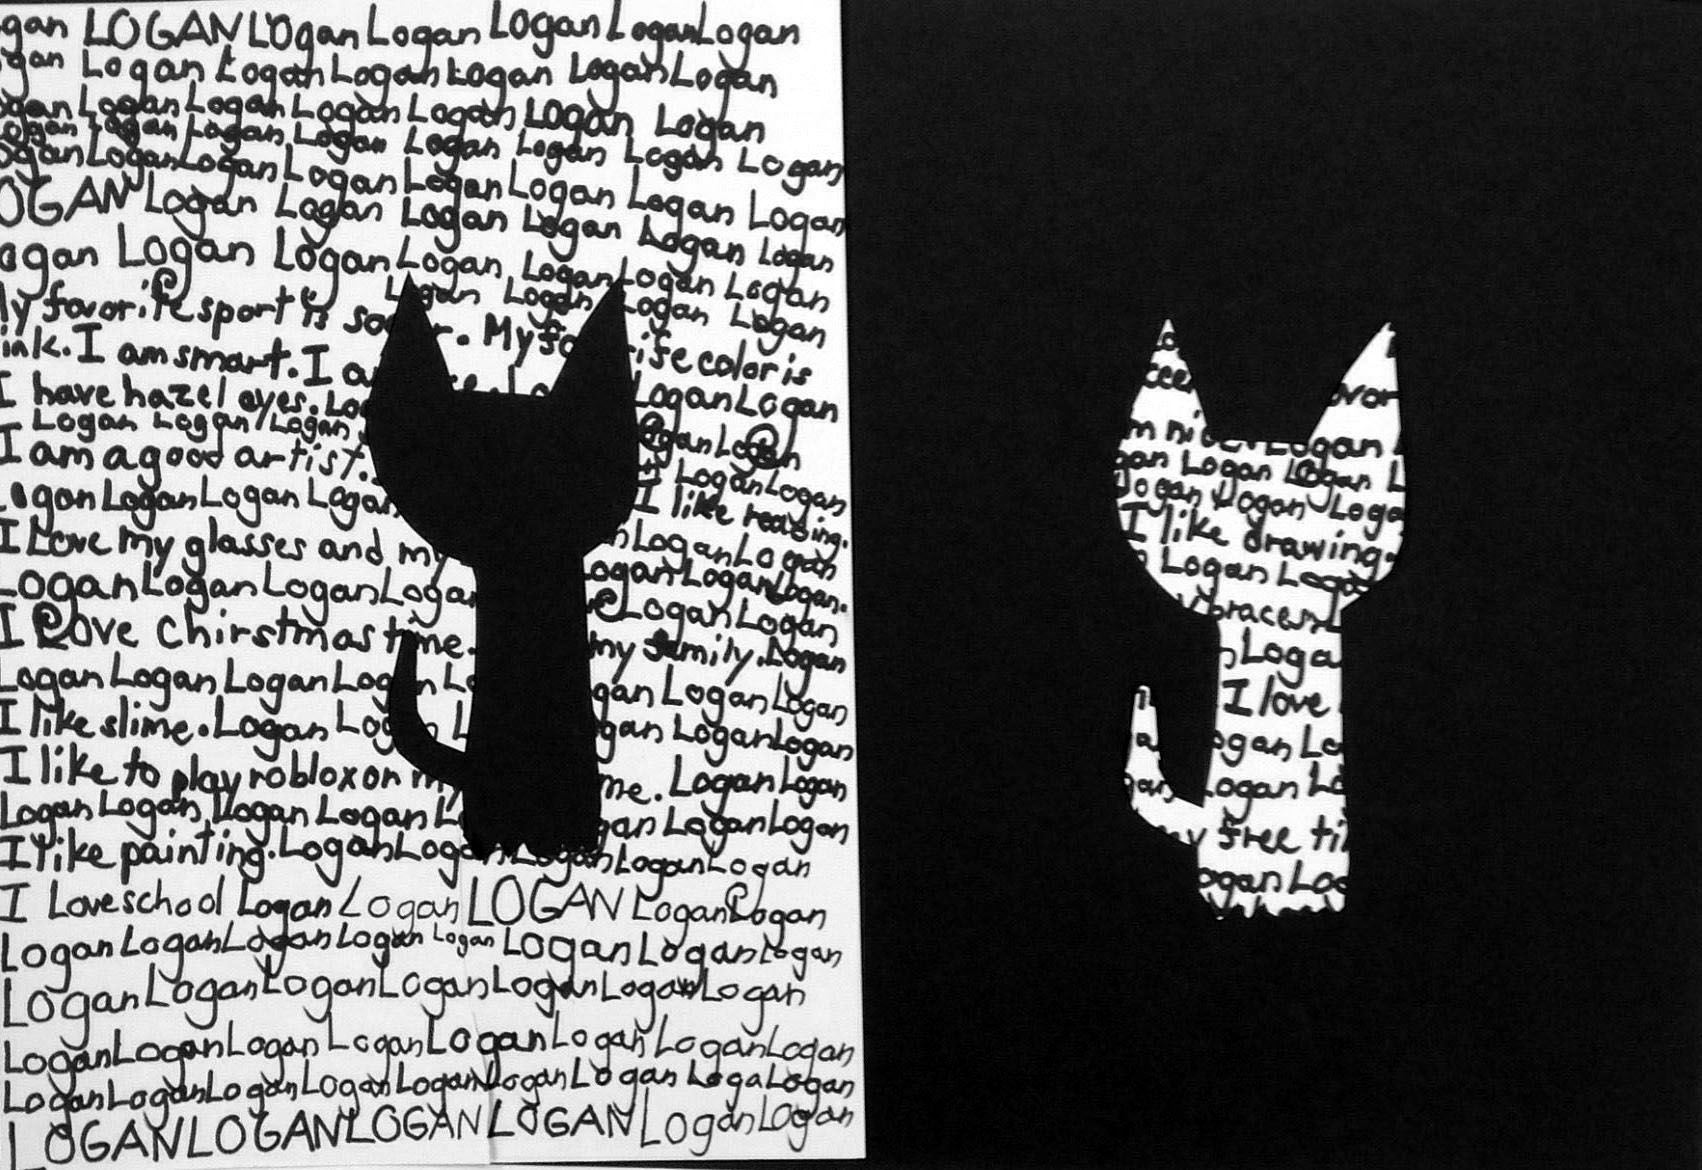 gan LOGAN Logan Logan Logan Logan Logan
gan Logan Logan Logan Logan Logan Logan
ogan Logan Logan Logan Logan Logan Logan
ogan Logan Logan Logan Logan Logan Logan Logan
ogan Logan Logan Logan Logan Logan Logan Logan
OGAN Logan Logan Logan Logan Logan Logan
ogan Logan Logan Logan Logan Logan Logan
Logan Logan Logan Logan
My favorite sport is so r. My fa rite color is
ink. I am smart. I a
I have hazel eyes. Lo Logan Logan
Logan Logan Logan ogan Logan
I am a good artist. Logan Logan
Logan Logan Logan Logan I like reading.
I Love my glasses and my Logan Logan
Logan Logan Logan Logan ogan Logan Logan.
I Love Chirstmas time. Logan Logan
my family. Logan
Logan Logan Logan Log n Lo gan Logan Logan
I like slime. Logan Log L gan Logan Logan
I like to play roblox on my me. Logan Logan
Logan Logan Logan Logan L gan Logan Logan
I like painting. Logan Logan Logan Logan Logan
I Love school Logan Logan LOGAN Logan Logan
Logan Logan Logan Logan Logan Logan Logan Logan
Logan Logan Logan Logan Logan Logan Logan
Logan Logan Logan Logan Logan Logan Logan Logan
Logan Logan Logan Logan Logan Logan Logan Loga Logan
LOGAN LOGAN LOGAN LOGAN Logan Logan
Lo
ccer avor
m ni Logan
gan Logan Logan L
Logan Logan Loga
I like drawing.
Logan Loga
braces L
Loga
I love
a ogan Lo
gan Logan Lo
my free ti
ogan Log